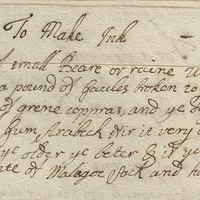 To Make Ink
of small Beare or raine w
a pound of Gaules broken to
of grene coppras, and ye
Gum, arabeck stir it very
ye older ye beter & if ye
of Malagoe Sack and